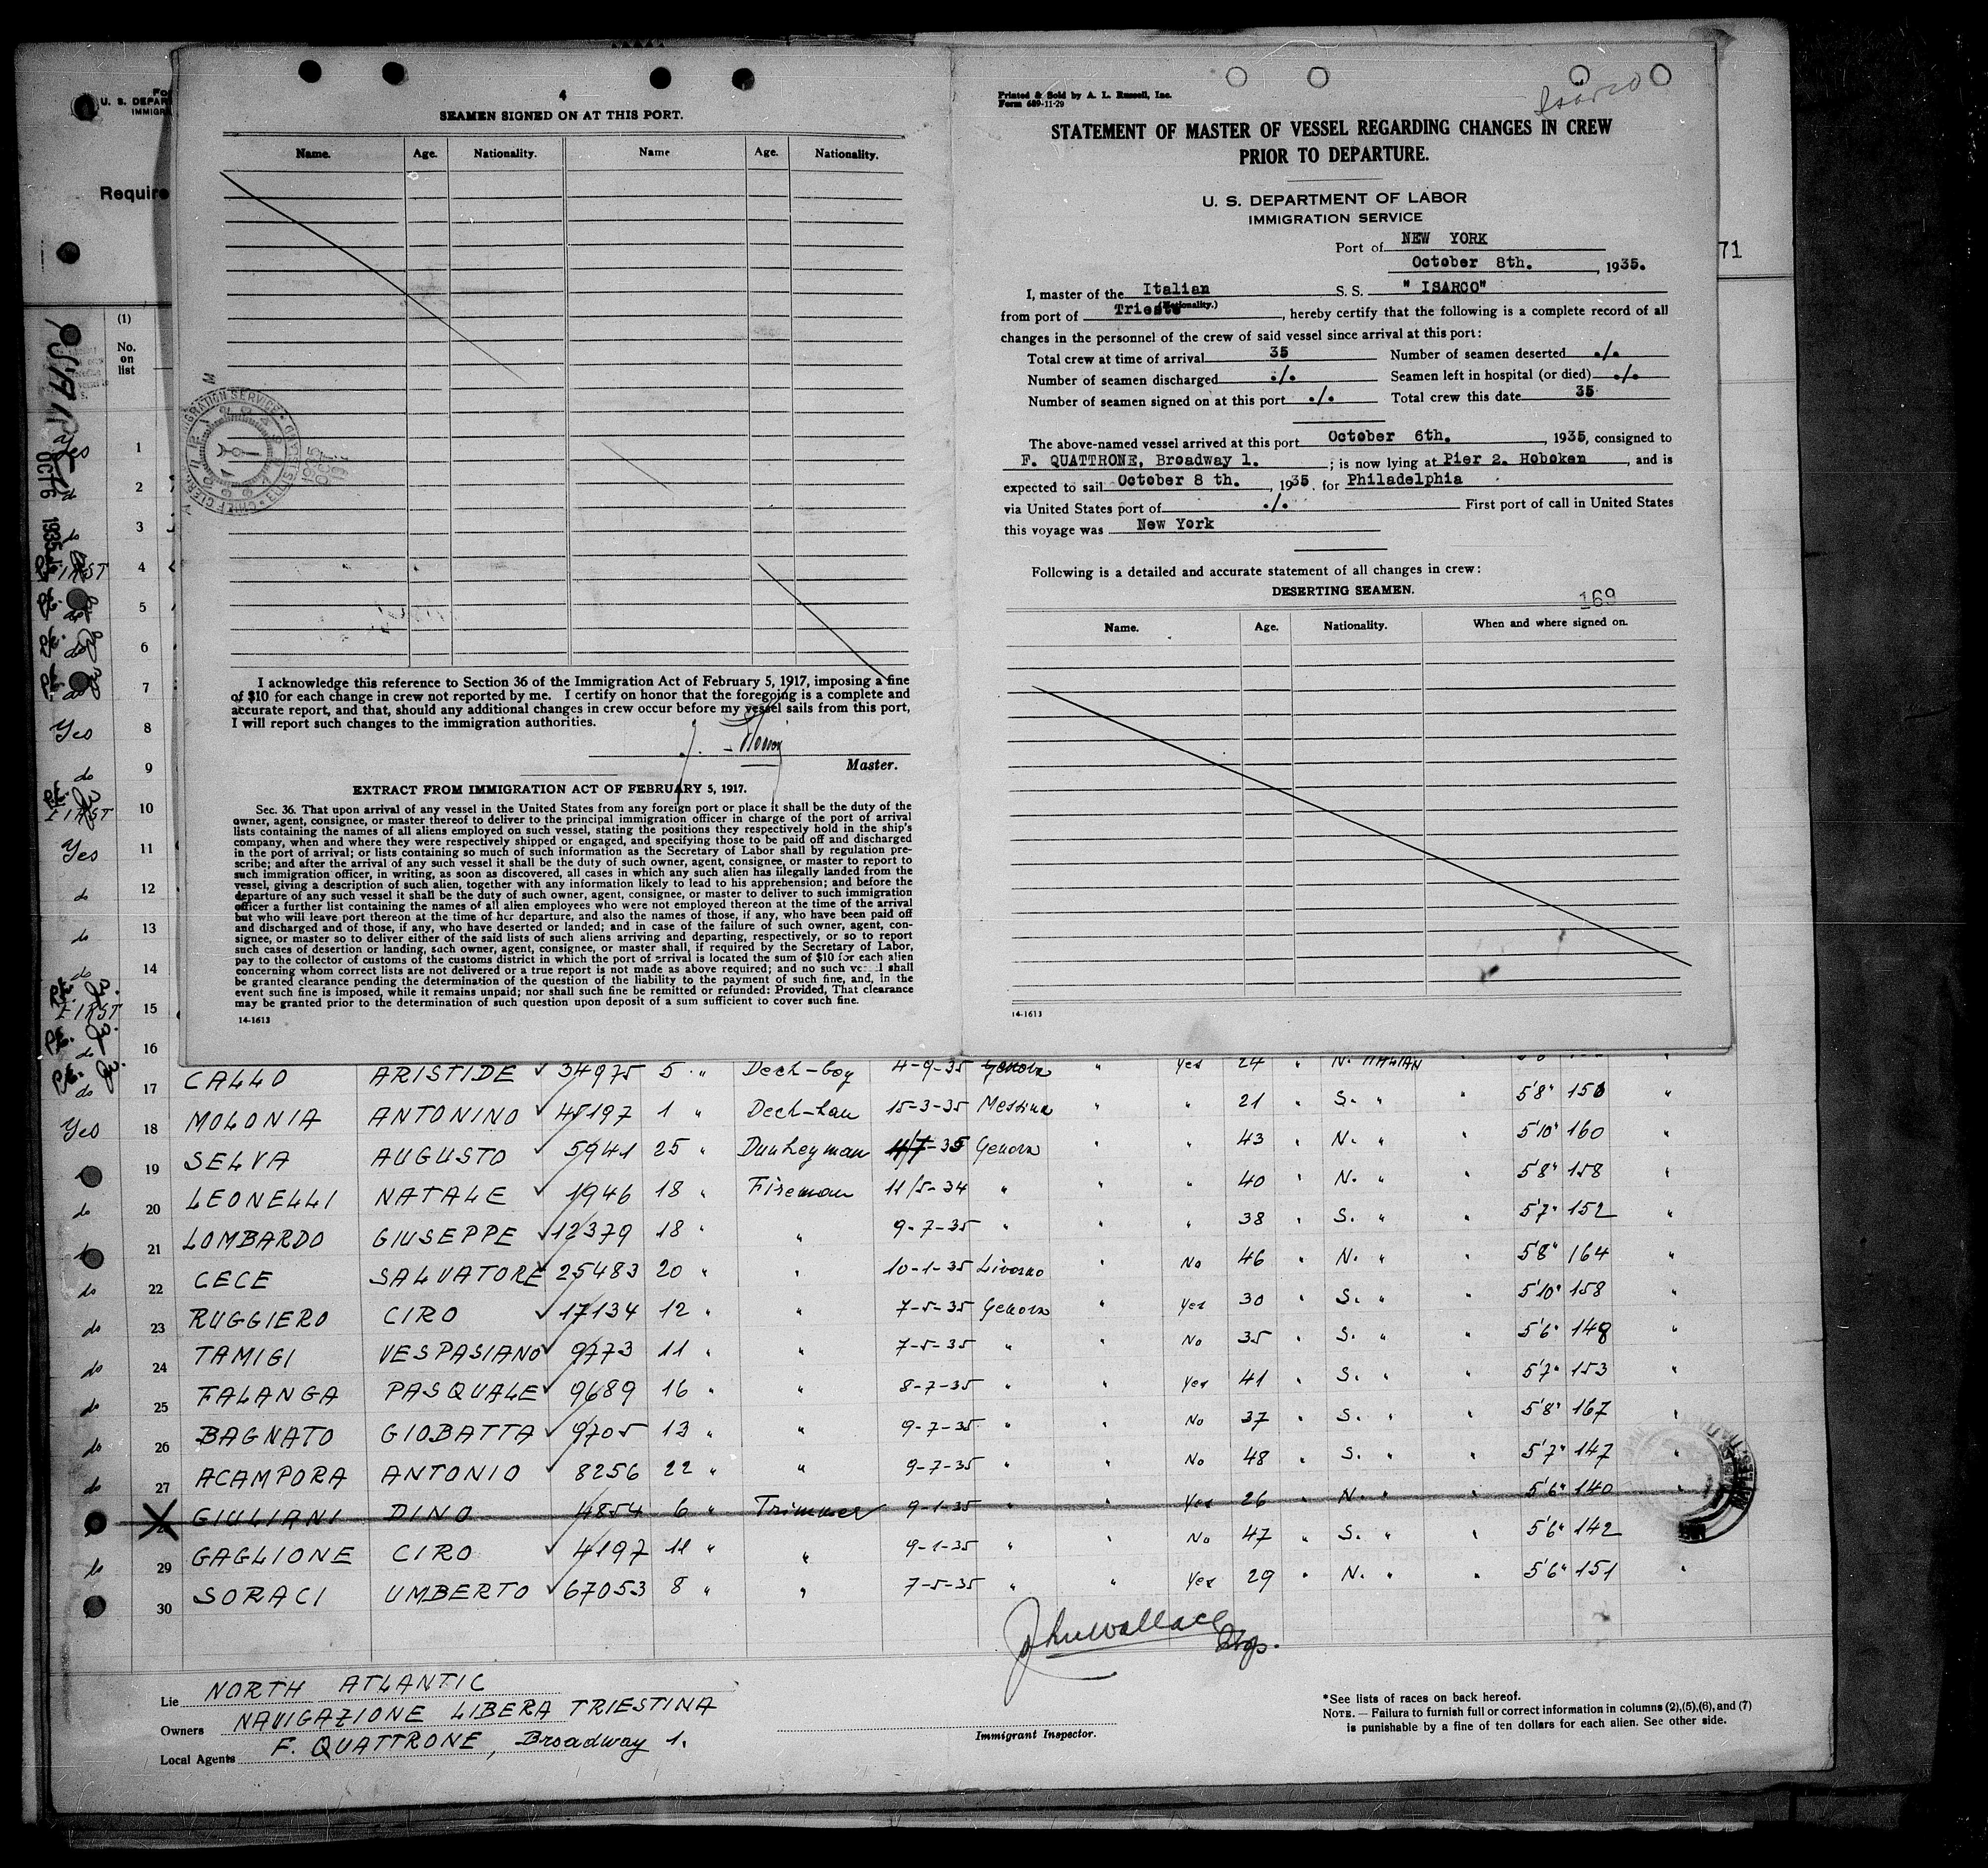 4
SEAMEN SIGNED ON AT THIS PORT.
Name. Age. Nationality. Name Age. Nationality.
I acknowledge this reference to Section 36 of the Immigration Act of February 5, 1917, imposing a fine
of $10 for each change in crew not reported by me. I certify on honor that the foregoing is a complete and
accurate report, and that, should any additional changes in crew occur before my vessel sails from this port,
I will report such changes to the immigration authorities.
Master.
EXTRACT FROM IMMIGRATION ACT OF FEBRUARY 5, 1917.
Sec. 36. That upon arrival of any vessel in the United States from any foreign port or place it shall be the duty of the
owner, agent, consignee, or master thereof to deliver to the principal immigration officer in charge of the port of arrival
lists containing the names of all aliens employed on such vessel, stating the positions they respectively hold in the ship's
company, when and where they were respectively shipped or engaged, and specifying those to be paid off and discharged
in the port of arrival; or lists containing so much of such information as the Secretary of Labor shall by regulation pre-
scribe; and after the arrival of any such vessel it shall be the duty of such owner, agent, consignee, or master to report to
such immigration officer, in writing, as soon as discovered, all cases in which any such alien has illegally landed from the
vessel, giving a description of such alien, together with any information likely to lead to his apprehension; and before the
departure of any such vessel it shall be the duty of such owner, agent, consignee, or master to deliver to such immigration
officer a further list containing the names of all alien employees who were not employed thereon at the time of the arrival
but who will leave port thereon at the time of her departure, and also the names of those, if any, who have been paid off
and discharged and of those, if any, who have deserted or landed; and in case of the failure of such owner, agent, con-
signee, or master so to deliver either of the said lists of such aliens arriving and departing, respectively, or so to report
such cases of desertion or landing, such owner, agent, consignee, or master shall, if required by the Secretary of Labor,
pay to the collector of customs of the customs district in which the port of arrival is located the sum of $10 for each alien
concerning whom correct lists are not delivered or a true report is not made as above required; and no such vessel shall
be granted clearance pending the determination of the question of the liability to the payment of such fine, and, in the
event such fine is imposed, while it remains unpaid; nor shall such fine be remitted or refunded: Provided, That clearance
may be granted prior to the determination of such question upon deposit of a sum sufficient to cover such fine.
14-1613
Printed & Sold by A. L. Russell, Inc.
Form 689-11-29
Isarco
STATEMENT OF MASTER OF VESSEL REGARDING CHANGES IN CREW
PRIOR TO DEPARTURE.
U. S. DEPARTMENT OF LABOR
IMMIGRATION SERVICE
Port of NEW YORK
October 8th., 1935.
I, master of the Italian S. S. " ISARCO"
(Nationality.)
from port of Trieste, hereby certify that the following is a complete record of all
changes in the personnel of the crew of said vessel since arrival at this port:
Total crew at time of arrival 35 Number of seamen deserted ./.
Number of seamen discharged ./. Seamen left in hospital (or died) ./.
Number of seamen signed on at this port ./. Total crew this date 35
The above-named vessel arrived at this port October 6th., 1935, consigned to
F. QUATTRONE, Broadway 1. ; is now lying at Pier 2. Hoboken, and is
expected to sail October 8 th., 1935, for Philadelphia
via United States port of ./. First port of call in United States
this voyage was New York
Following is a detailed and accurate statement of all changes in crew:
DESERTING SEAMEN.
169
Name. Age. Nationality. When and where signed on.
14-1613
U. S. DEPAR
IMMIGR
Require
71
(1)
No.
on
list
OCT 6 1935
Yes 1
do 2
do 3
FIRST 4
5
do 6
do 7
Yes 8
do 9
FIRST 10
Yes 11
do 12
do 13
do 14
FIRST 15
do 16
do 17 CALLO ARISTIDE ✓ 34975 5 " Deck-boy 4-9-35 Genova " Yes 24 " N. ITALIAN "
Yes 18 MOLONIA ANTONINO ✓ 45197 1 " Deck-hau 15-3-35 Messina " " 21 " S. " " 5'8" 150 "
19 SELVA AUGUSTO ✓ 5941 25 " Dunkeyman 4/7-35 Genova " " 43 " N. " " 5'10" 160 "
do 20 LEONELLI NATALE ✓ 1946 18 " Fireman 11/5-34 " " " 40 " N. " " 5'8" 158 "
do 21 LOMBARDO GIUSEPPE ✓ 12379 18 " " 9-7-35 " " " 38 " S. " " 5'7" 152 "
do 22 CECE SALVATORE 25483 20 " " 10-1-35 Livorno " No 46 " N. " " 5'8" 164 "
do 23 RUGGIERO CIRO ✓ 17134 12 " " 7-5-35 Genova " Yes 30 " S. " " 5'10" 158 "
do 24 TAMIGI VESPASIANO ✓ 9773 11 " " 7-5-35 " " No 35 " S. " " 5'6" 148 "
do 25 FALANGA PASQUALE ✓ 9689 16 " " 8-7-35 " " Yes 41 " S. " " 5'7" 153 "
do 26 BAGNATO GIOBATTA ✓ 9705 13 " " 9-7-35 " " No 37 " S. " " 5'8" 167 "
do 27 ACAMPORA ANTONIO ✓ 8256 22 " " 9-7-35 " " No 48 " S. " " 5'7" 147 "
X GIULIANI DINO 4854 6 " Trimmer 9-1-35 " " Yes 26 " N. " " 5'6" 140 "
do 29 GAGLIONE CIRO ✓ 4197 11 " " 9-1-35 " " No 47 " S. " " 5'6" 142 "
30 SORACI UMBERTO ✓ 67053 8 " " 7-5-35 " " Yes 29 " N. " " 5'6" 151 "
John Wallace
Lie NORTH ATLANTIC
Owners NAVIGAZIONE LIBERA TRIESTINA
Local Agents F. QUATTRONE, Broadway 1.
Immigrant Inspector.
*See lists of races on back hereof.
NOTE. — Failura to furnish full or correct information in columns (2),(5),(6), and (7)
is punishable by a fine of ten dollars for each alien. See other side.